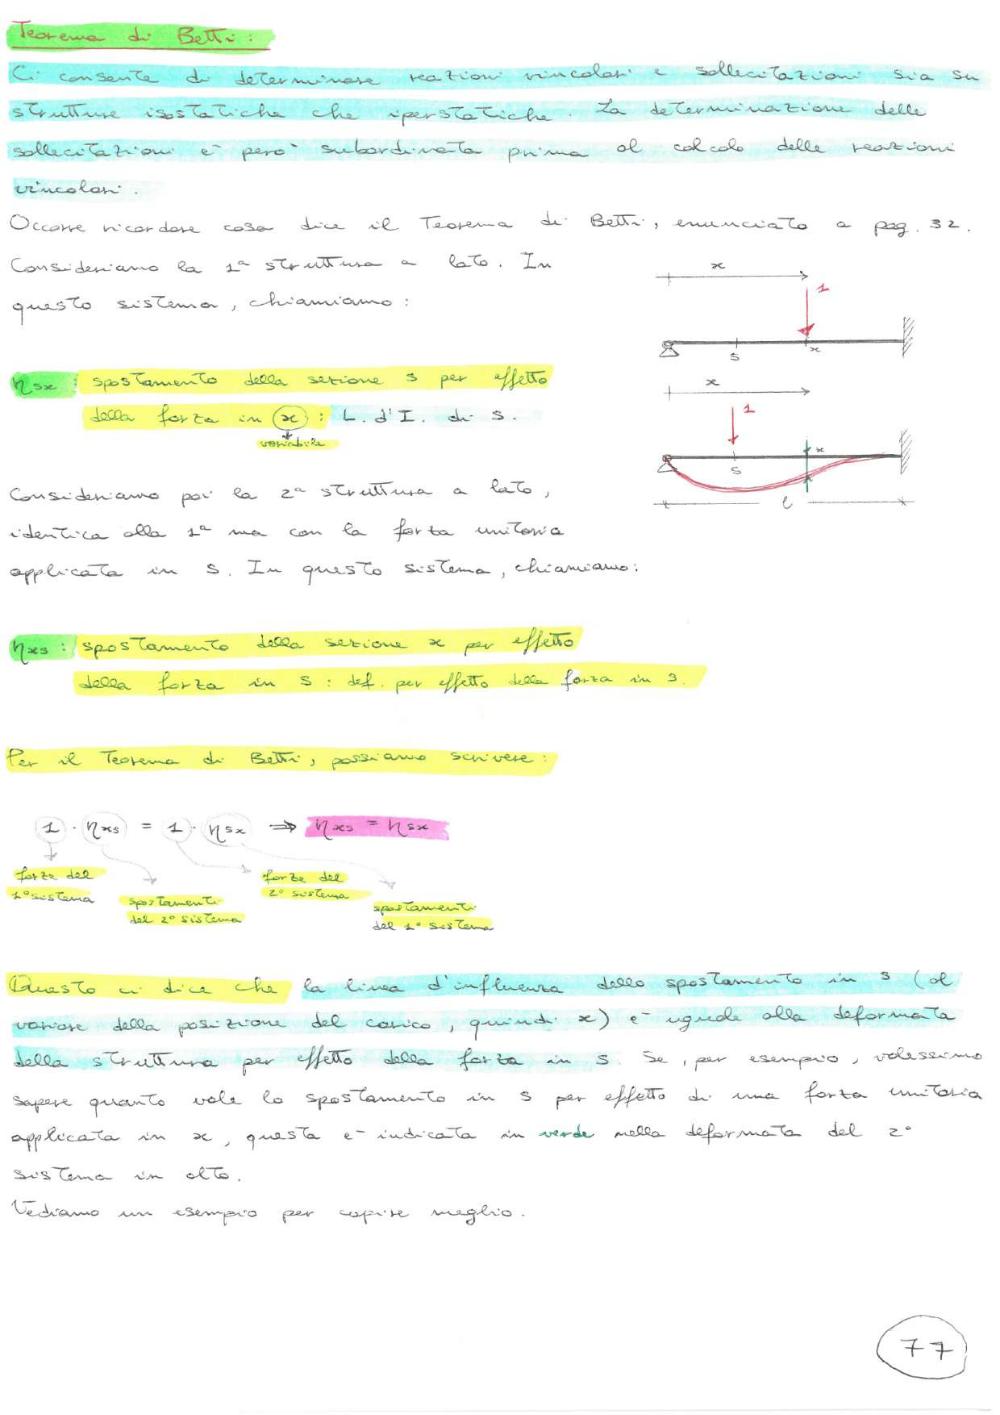 Teorema di Betti:
Ci consente di determinare reazioni vincolari e sollecitazioni sia su
strutture isostatiche che iperstatiche. La determinazione delle
sollecitazioni è però subordinata prima al calcolo delle reazioni
vincolari.
Occorre ricordare cosa dice il Teorema di Betti, enunciato a pag. 32.
Consideriamo la 1ª struttura a lato. In
questo sistema, chiamiamo:
x
1
S
x
ηsx : spostamento della sezione S per effetto
della forza in x : L. d'I. di S.
variabile
x
1
S
x
l
Consideriamo poi la 2ª struttura a lato,
identica alla 1ª ma con la forza unitaria
applicata in S. In questo sistema, chiamiamo:
ηxs : spostamento della sezione x per effetto
della forza in S : def. per effetto della forza in S.
Per il Teorema di Betti, possiamo scrivere:
1 · ηxs = 1 · ηsx ⇒ ηxs = ηsx
forze del
1° sistema
spostamenti
del 2° sistema
forze del
2° sistema
spostamenti
del 1° sistema
Questo ci dice che la linea d'influenza dello spostamento in S (al
variare della posizione del carico, quindi x) è uguale alla deformata
della struttura per effetto della forza in S. Se, per esempio, volessimo
sapere quanto vale lo spostamento in S per effetto di una forza unitaria
applicata in x, questa è indicata in verde nella deformata del 2°
sistema in alto.
Vediamo un esempio per capire meglio.
77